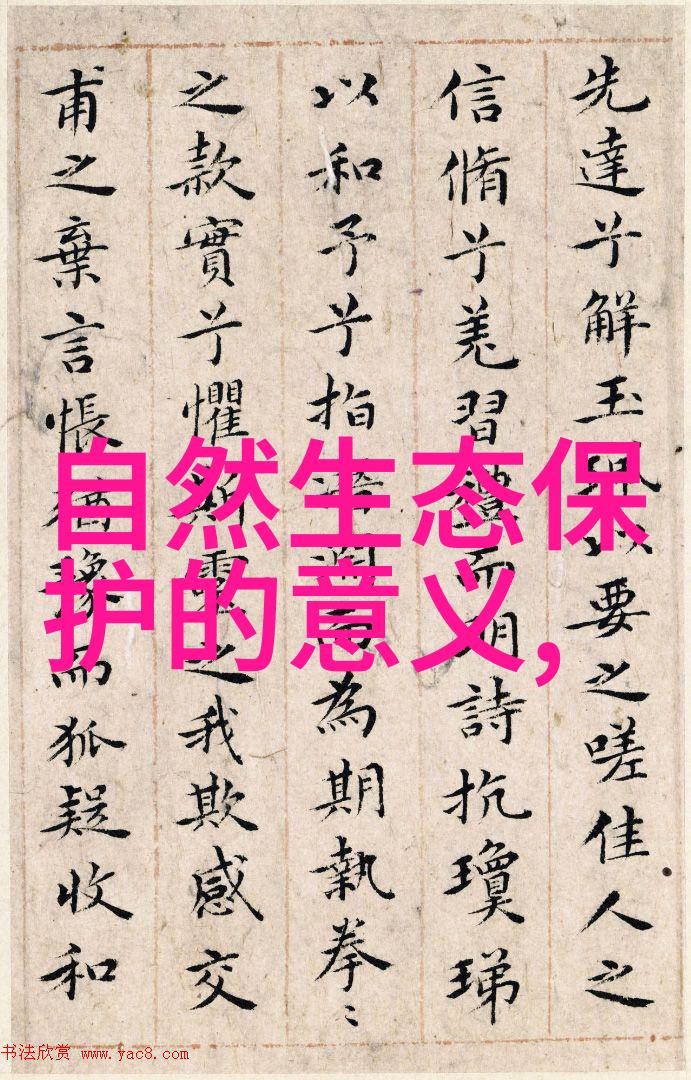 先達兮解玉珮以要之嗟佳人之
信脩兮羌習禮而明詩抗瓊珶
以和予兮指潛淵而為期執拳〻
之款實兮懼斯靈之我欺感交
甫之棄言悵猶豫而狐疑收和
自然生态保
护的意义,
书法欣赏 www.yac8.com